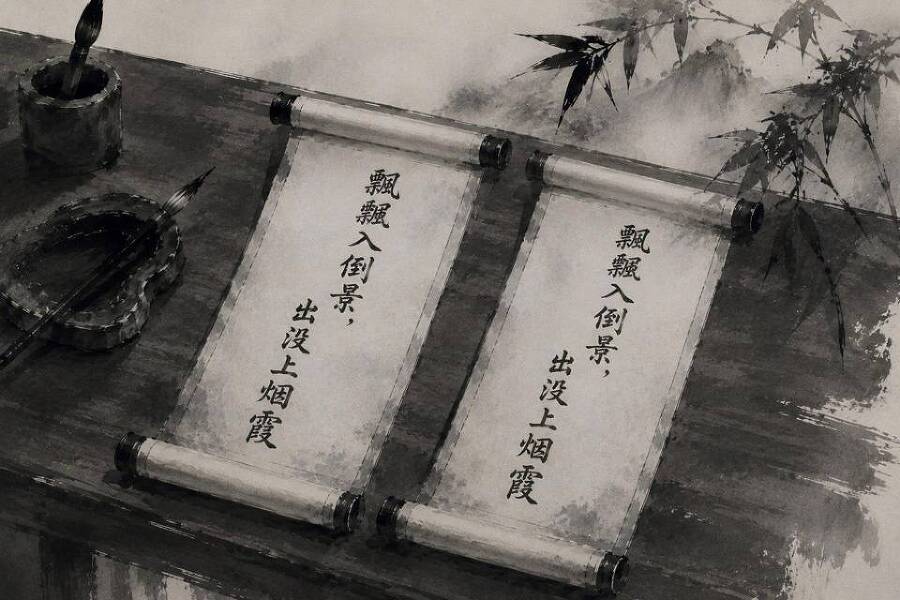 飄飄入倒景，
出没上烟霞
飄飄入倒景，
出没上烟霞